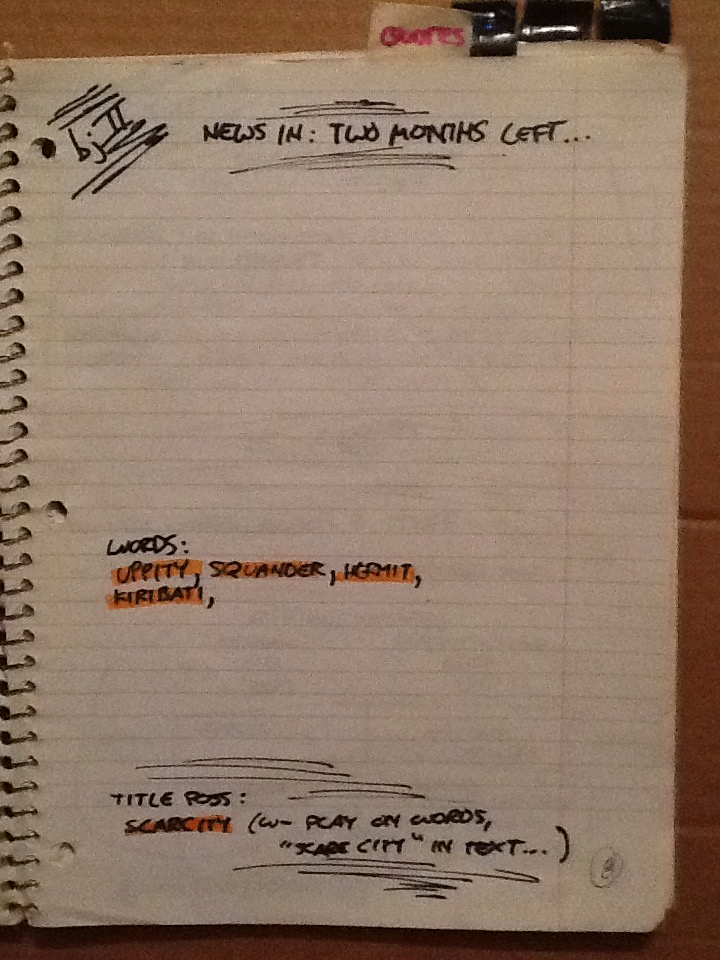 QUOTES
bj II
NEWS IN: TWO MONTHS LEFT...
WORDS:
UPPITY, SQUANDER, HERMIT,
KIRIBATI,
TITLE POSS:
SCARCITY (W- PLAY ON WORDS,
"SCARE CITY" IN TEXT...)